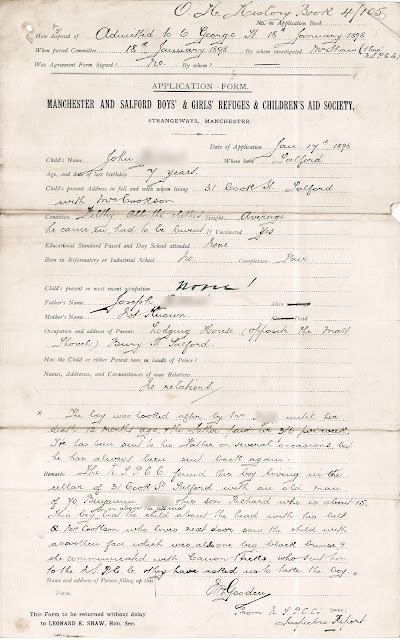 O. H. History Book 4/105
No. in Application Book
How disposed of Admitted to 6 George St 18th January 1898
When passed Committee 18th January 1898 By whom investigated Mr Shaw (thro N.S.P.C.C)
Was Agreement Form Signed? No. By whom?
APPLICATION FORM.
MANCHESTER AND SALFORD BOYS' & GIRLS' REFUGES & CHILDREN'S AID SOCIETY,
STRANGEWAYS, MANCHESTER.
Date of Application Jan 17th 1898
Child's Name John Where born Salford
Age, and date of last birthday 7 years.
Child's present Address in full and with whom living 31 Cook St. Salford
with Mrs Cookson
Condition Filthy. All the clothes Height Average
he came in, had to be burnt If Vaccinated Yes
Educational Standard Passed and Day School attended None
Been in Reformatory or Industrial School No Complexion Fair
Child's present or most recent occupation None!
Father's Name Joseph Alive
Mother's Name Not Known Dead
Occupation and address of Parents Lodging House (opposite the Malt
Shovel) Bury St Salford.
Has the Child or either Parent been in hands of Police?
Names, Addresses, and Circumstances of near Relations
No relations
The boy was looked after by Mrs until her
death months ago, the father paid her 3/6 per week.
He has been sent to his Father on several occasions, but
he has always been sent back again.
Remarks The N.S.P.C.C found this boy living in the
cellar of 31 Cook St Salford with an old man
of 70, Benjamin & his son Richard who is about 15.
This boy beat the child about the head with his belt
& Mrs Cookson who lives next door saw the child with
a swollen face which was also one big black bruise &
she communicated with Canon Hicks who sent her
to the N.S.P.C.C. & they have asked us to take the boy.
Name and address of Person filling up this
Form. Mr Gooden
From N.S.P.C.Cs
Inspectors Report
This Form to be returned without delay
to LEONARD K. SHAW, Hon. Sec.